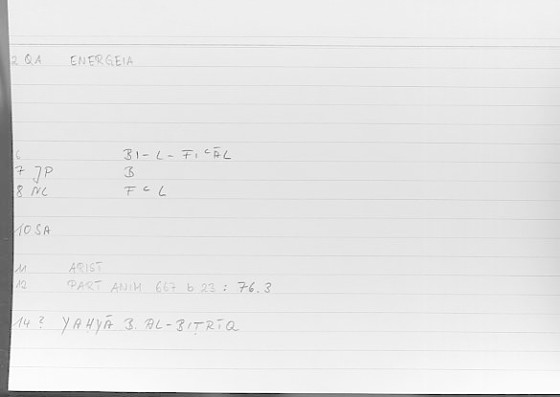 2 QA ENERGEIA
6 BI-L-FIʿĀL
7 JP B
8 NL FʿL
10 SA
11 ARIST
12 PART ANIM 667 b 23 : 76.3
14 ? YAHYĀ B. AL-BIṬRĪQ